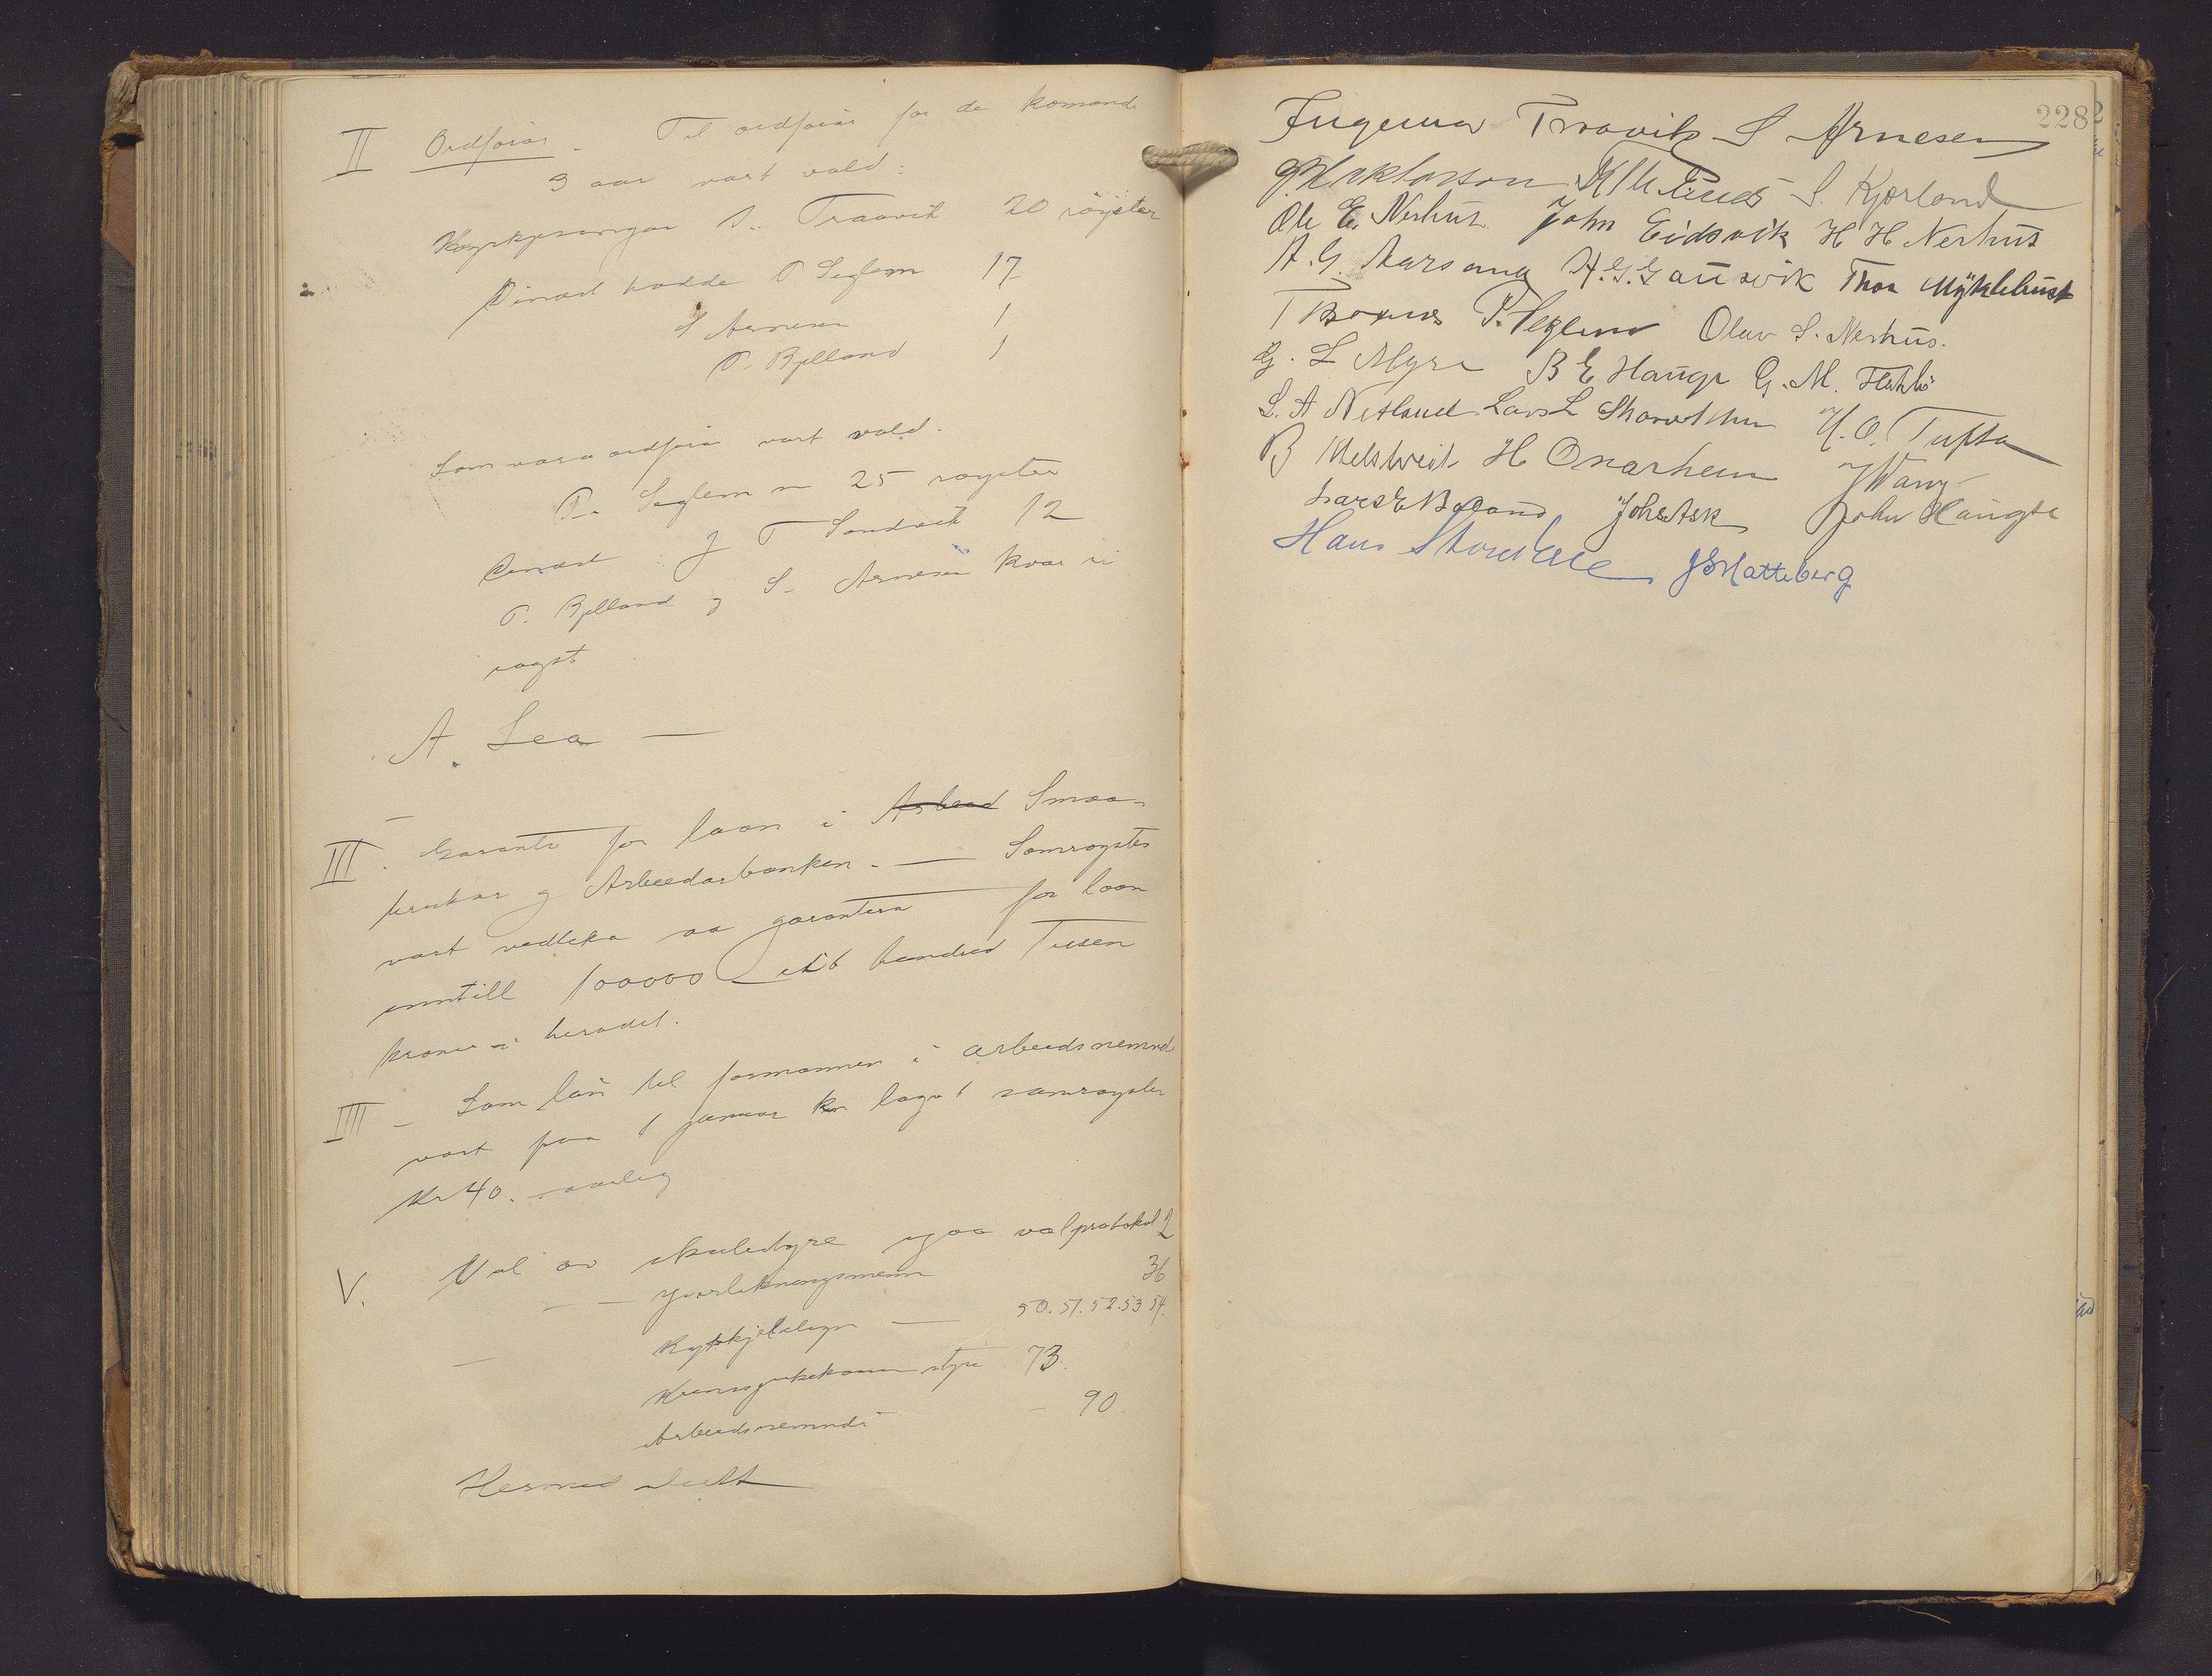 II Ordførar. Til ordførar for de komande
3 aar vart vald:
Kyrkjesongar I. Traavik 20 røyster
Dinæst hadde P Seglem 17
S Arnesen 1
T. Bjelland 1
Som varaordførar vart vald.
P. Seglem m 25 røyster
dinæst J T Sandvik 12
T. Bjelland og S. Arnesen kvar ei
røyst
A. Lea —
III. Garanti for laan i Arbeid Smaa-
brukar og Arbeidarbanken. — Samrøystes
vart vedteke aa garantera for laan
inntill 100000 eit hundrad Tusen
kroner i heradet.
IIII - Som løn til formannen i arbeidsnemnde
vart fraa 1 januar laga samrøystes
Kr 40. aarleg
V. Val av skulestyre sjaa valprotokol 2
" — yverlikningsmenn 36
— Kyrkjetilsyn — 50. 51. 52. 53 54.
Kretssjukekasse styre 73.
Arbeidsnemndi — 90.
Hermed slutt
228
Ingemar Traavik S Arnesen
S. Kjærland
Ole E. Nerhus John Eidsvik H H Nerhus
A. G. Aarsand H. G. Gausvik Thor Myklebust
P. Seglem Olav S. Nerhus.
G. L Myre B E Hauge G. M.
S. A Netland Lars L H. O. Tufta
B Melstveit H Onarheim J Wang
Lars E Johs Ask John Haugse
Hans J S Hatteberg